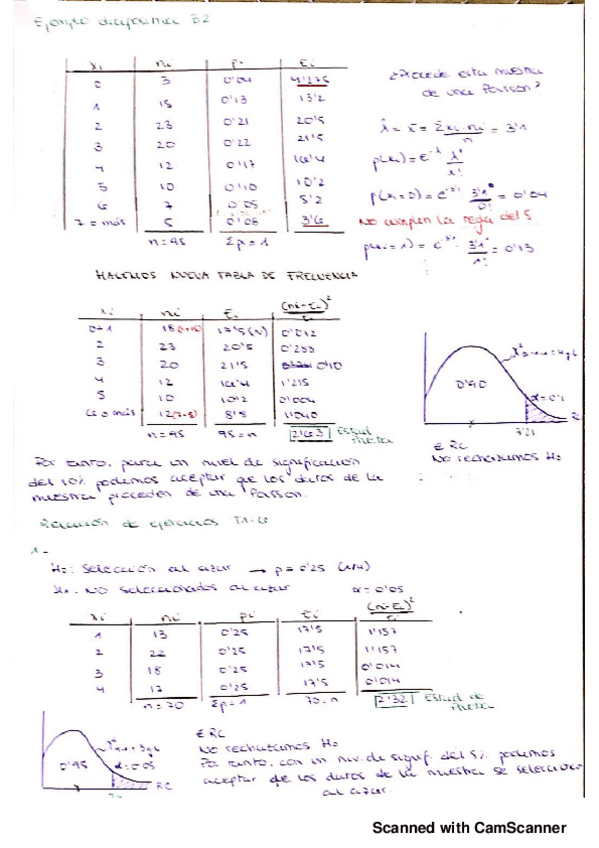 Ejemplo diapositiva 32
xi ni pi Ei
0 3 0'04 4'275
1 15 0'13 13'2
2 23 0'21 20'5
3 20 0'22 21'5
4 12 0'17 16'4
5 10 0'10 10'2
6 7 0'05 5'2
7 o más 5 0'08 3'6
n = 95 Σpi = 1
¿Procede esta muestra
de una Poisson?
λ̂ = x̄ = Σxi ni / n = 3'1
p(xi) = e^-λ λ^x / x!
p(xi = 0) = e^-3'1 3'1^0 / 0! = 0'04
No cumplen la regla del 5
p(xi = 1) = e^-3'1 · 3'1^1 / 1! = 0'13
HACEMOS NUEVA TABLA DE FRECUENCIA
xi ni Ei (ni-Ei)² / Ei
0 o 1 18 17'5 0'012
2 23 20'5 0'288
3 20 21'5 0'10
4 12 16'4 1'215
5 10 10'2 0'004
6 o más 12 (7+5) 8'8 1'040
n = 95 95 = n 2'63 Estad
Prueba
0'90
α = 0'1
RC
7'21
∉ RC
No rechazamos H₀
Por tanto, para un nivel de significación
del 10% podemos aceptar que los datos de la
muestra proceden de una Poisson.
Relación de ejercicios T1-6
1-
H₀: Selección al azar → p = 0'25 (1/4)
H₁: NO seleccionados al azar α = 0'05
xi ni pi Ei (ni-Ei)² / Ei
1 13 0'25 17'5 1'157
2 22 0'25 17'5 1'157
3 18 0'25 17'5 0'014
4 17 0'25 17'5 0'014
n = 70 Σp = 1 70 = n 2'32 Estad de
Prueba
0'95
α = 0'05
RC
∉ RC
No rechazamos H₀
Por tanto, con un niv. de signif. del 5% podemos
aceptar que los datos de la muestra se seleccionan
al azar.
Scanned with CamScanner